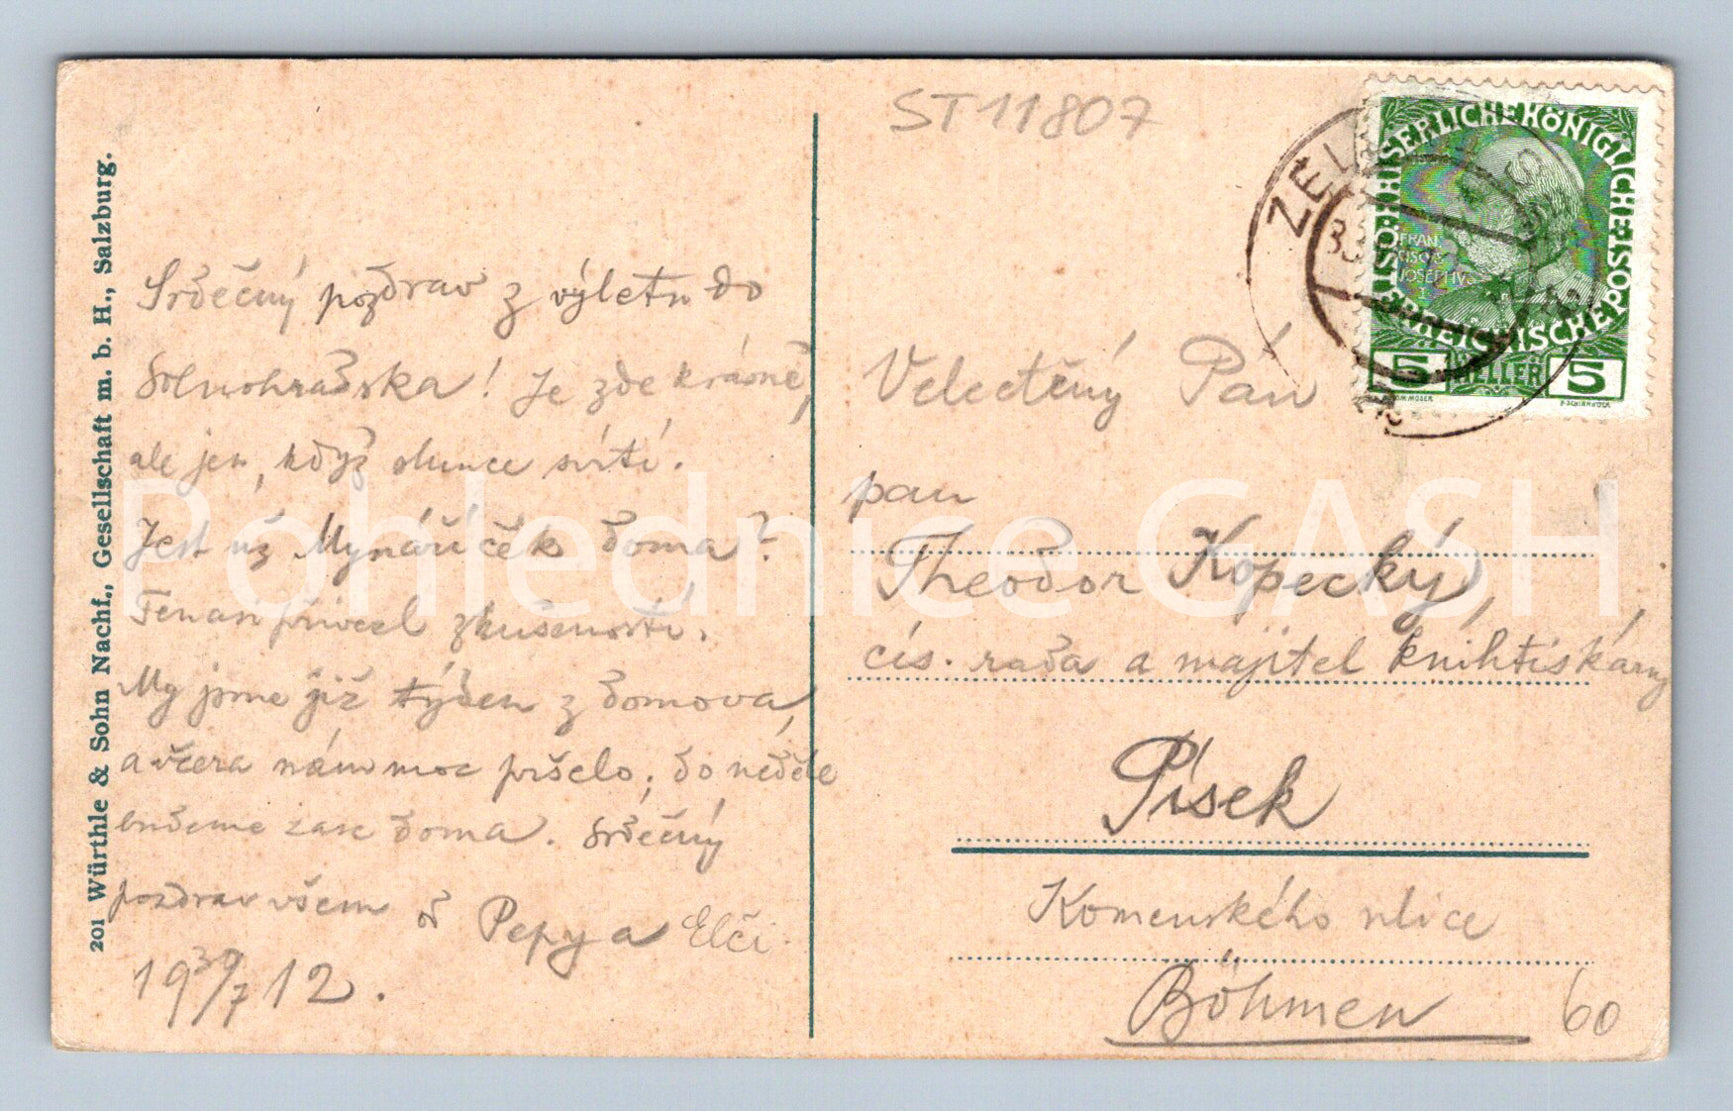 ST 11807
ZELL
KAISERLICHE KÖNIGLICHE
OESTERREICHISCHE POST
5 HELLER 5
Srdečný pozdrav z výletu do
Solnohradska! Je zde krásně,
ale jen, když slunce svítí.
Jest už Mynáříček doma?
zkušenosti.
My jsme již týden z domova,
a včera nám moc pršelo; do neděle
budeme zase doma. Srdečný
pozdrav všem od Pepy a Elči.
19 30/7 12.
201 Würthle & Sohn Nachf., Gesellschaft m. b. H., Salzburg.
Velectěný Pán
pan
Theodor Kopecký,
cís. rada a majitel knihtiskárny
Písek
Komenského ulice
Böhmen
60
Pohlednice GASH